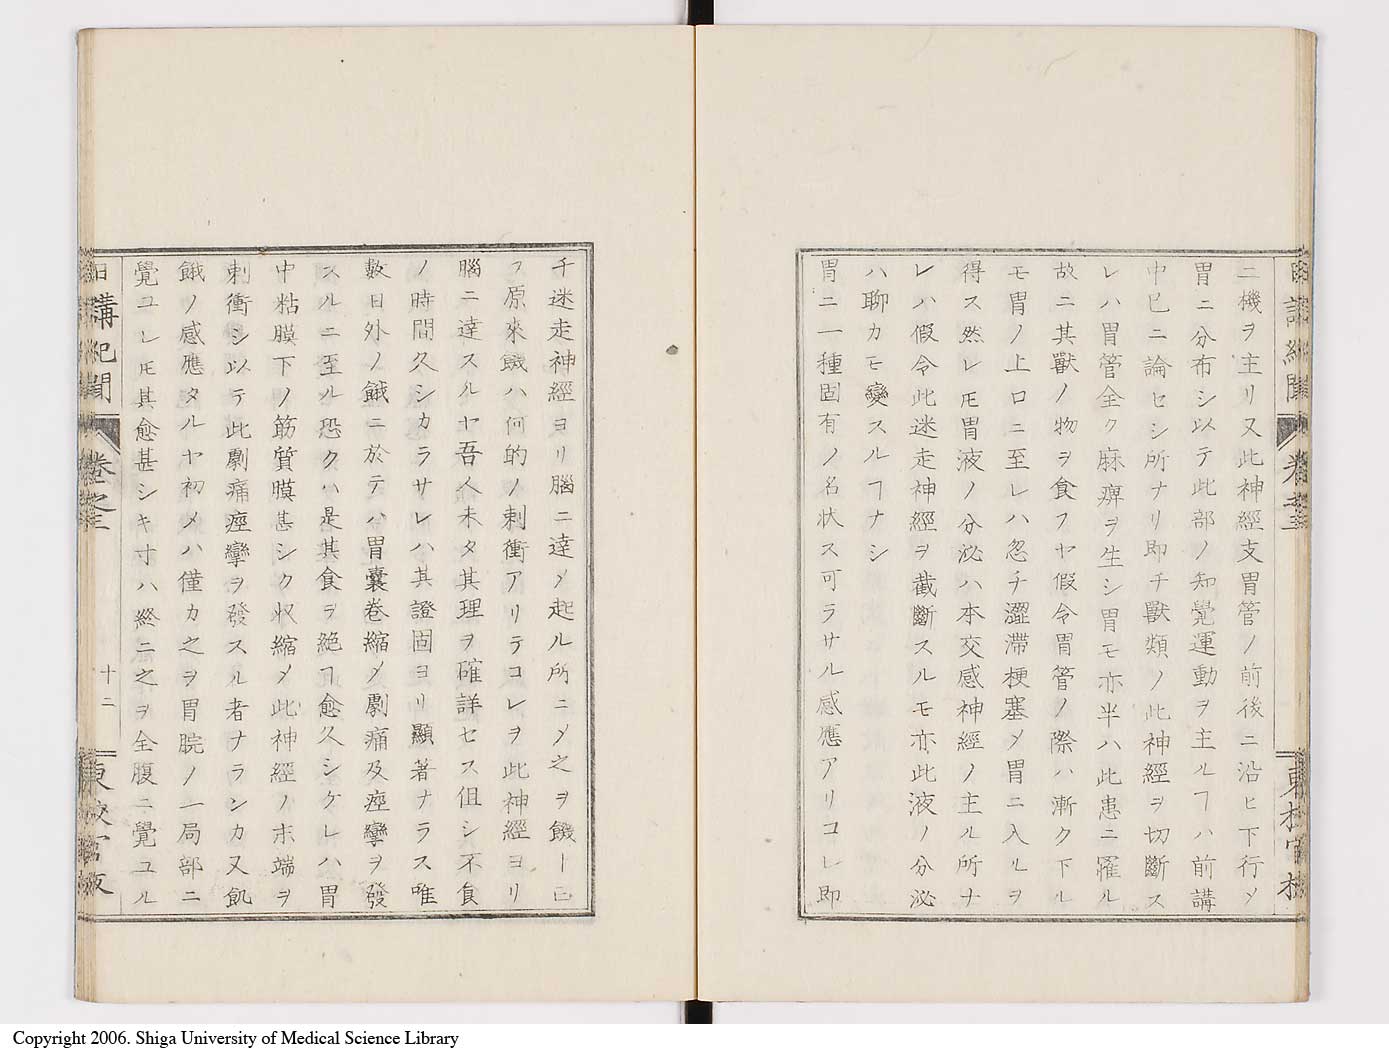 二機ヲ主リ又此神經支胃管ノ前後ニ沿ヒ下行〆
胃ニ分布シ以テ此部ノ知覺運動ヲ主ルヿハ前講
中已ニ論セシ所ナリ即チ獸類ノ此神經ヲ切斷ス
レハ胃管全ク麻痺ヲ生シ胃モ亦半ハ此患ニ罹ル
故ニ其獸ノ物ヲ食フヤ假令胃管ノ際ハ漸ク下ル
モ胃ノ上口ニ至レハ忽チ澀滯梗塞〆胃ニ入ルヲ
得ス然レ𪜈胃液ノ分泌ハ本交感神經ノ主ル所ナ
レハ假令此迷走神經ヲ截斷スルモ亦此液ノ分泌
ハ聊カモ變スルヿナシ
胃ニ一種固有ノ名狀ス可ラサル感應アリコレ即
千迷走神經ヨリ腦ニ達〆起ル所ニ〆之ヲ饑ト云
フ原來饑ハ何的ノ刺衝アリテコレヲ此神經ヨリ
腦ニ達スルヤ吾人未タ其理ヲ確詳セス但シ不食
ノ時間久シカラサレハ其證固ヨリ顯著ナラス唯
數日外ノ餓ニ於テハ胃囊卷縮〆劇痛及痙攣ヲ發
スルニ至ル恐クハ是其食ヲ絶ヿ愈久シケレハ胃
中粘膜下ノ筋質膜甚シク収縮〆此神經ノ末端ヲ
刺衝シ以テ此劇痛痙攣ヲ發スル者ナランカ又飢
餓ノ感應タルヤ初メハ僅カ之ヲ胃脘ノ一局部ニ
覺ユレ𪜈其愈甚シキ寸ハ終ニ之ヲ全腹ニ覺ユル
日講紀聞 卷之三 十二 東校官版
Copyright 2006. Shiga University of Medical Science Library